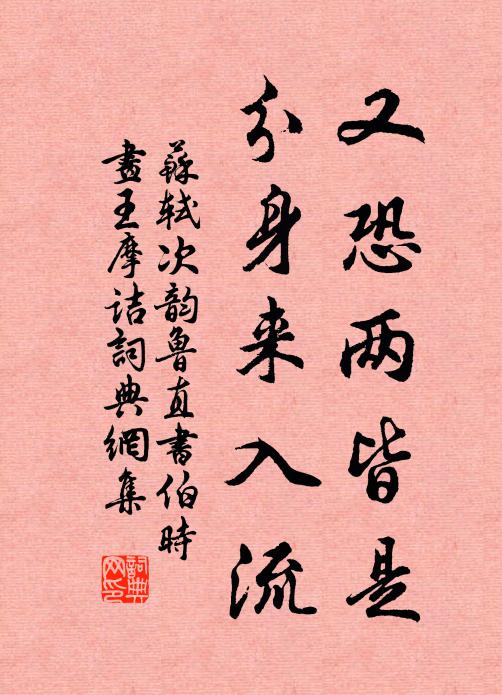 又恐两皆是
分身来入流
蘇轼次韵魯直書伯時
畫王摩詰詞典網集
詞典网印